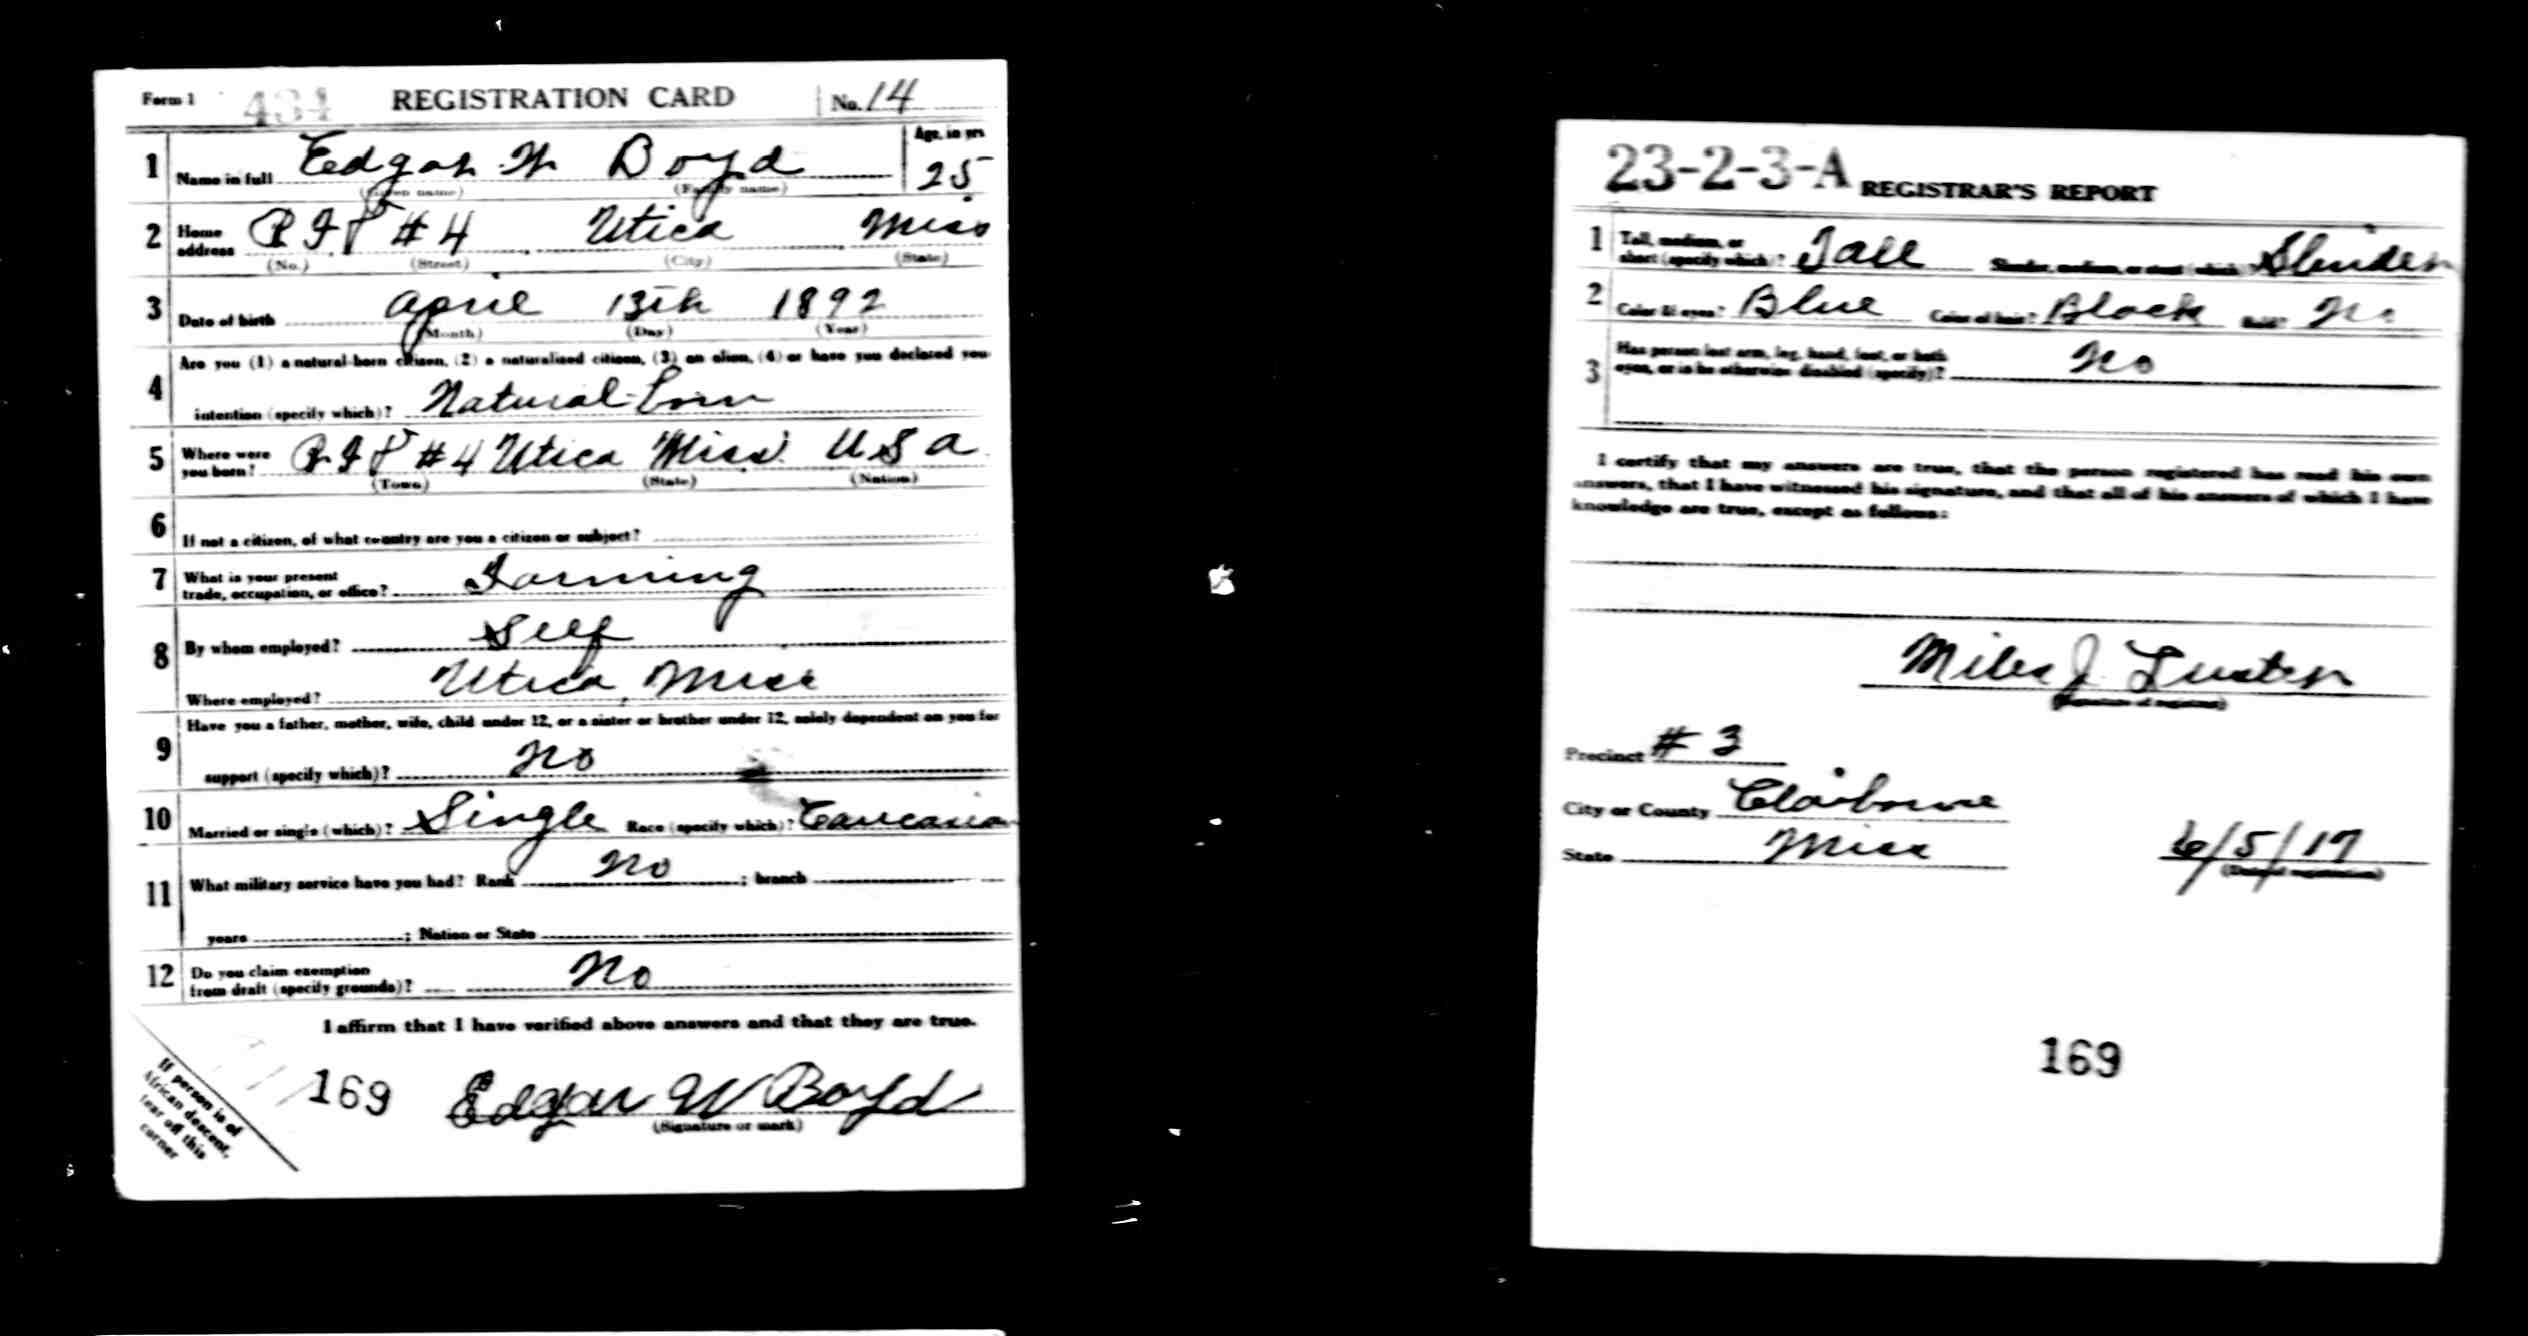 Form 1 434 REGISTRATION CARD No. 14
1 Name in full Edgar W Boyd Age, in yrs 25
(Given name) (Family name)
2 Home address RFD #4 Utica Miss
(No.) (Street) (City) (State)
3 Date of birth April 13th 1892
(Month) (Day) (Year)
4 Are you (1) a natural-born citizen, (2) a naturalized citizen, (3) an alien, (4) or have you declared your
intention (specify which)? Natural-born
5 Where were you born? RFD #4 Utica Miss U S A
(Town) (State) (Nation)
6 If not a citizen, of what country are you a citizen or subject?
7 What is your present trade, occupation, or office? Farming
8 By whom employed? Self
Where employed? Utica, Miss
9 Have you a father, mother, wife, child under 12, or a sister or brother under 12, solely dependent on you for
support (specify which)? No
10 Married or single (which)? Single Race (specify which)? Caucasian
11 What military service have you had? Rank No ; branch
years ; Nation or State
12 Do you claim exemption from draft (specify grounds)? No
I affirm that I have verified above answers and that they are true.
169 Edgar W Boyd
(Signature or mark)
If person is of
African descent,
tear off this
corner
23-2-3-A REGISTRAR'S REPORT
1 Tall, medium, or short (specify which)? Tall Slender, medium, or stout (which)? Slender
2 Color of eyes? Blue Color of hair? Black Bald? No
3 Has person lost arm, leg, hand, foot, or both
eyes, or is he otherwise disabled (specify)? No
I certify that my answers are true, that the person registered has read his own
answers, that I have witnessed his signature, and that all of his answers of which I have
knowledge are true, except as follows:
Miles J.
(Signature of registrar)
Precinct #3
City or County Claiborne
State Miss 6/5/17
(Date of registration)
169